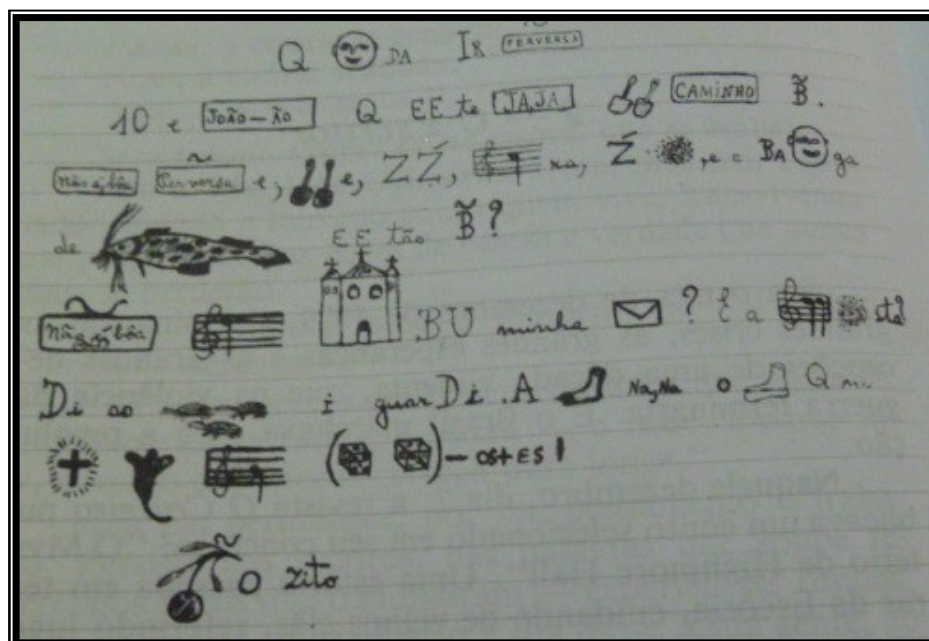 Q DA IR PERVERSA
10 e JOÃO-ÃO Q EE te JAJA CAMINHO B̃.
Não é, bôa Perversa e, e, Z Ź, na, Ź e c BA ga
de EE tão B̃?
Não é, bôa BU minha ? E a sta?
Di ao i guar Di. A Na, Na o Q m.
- OS + ES !
O zito